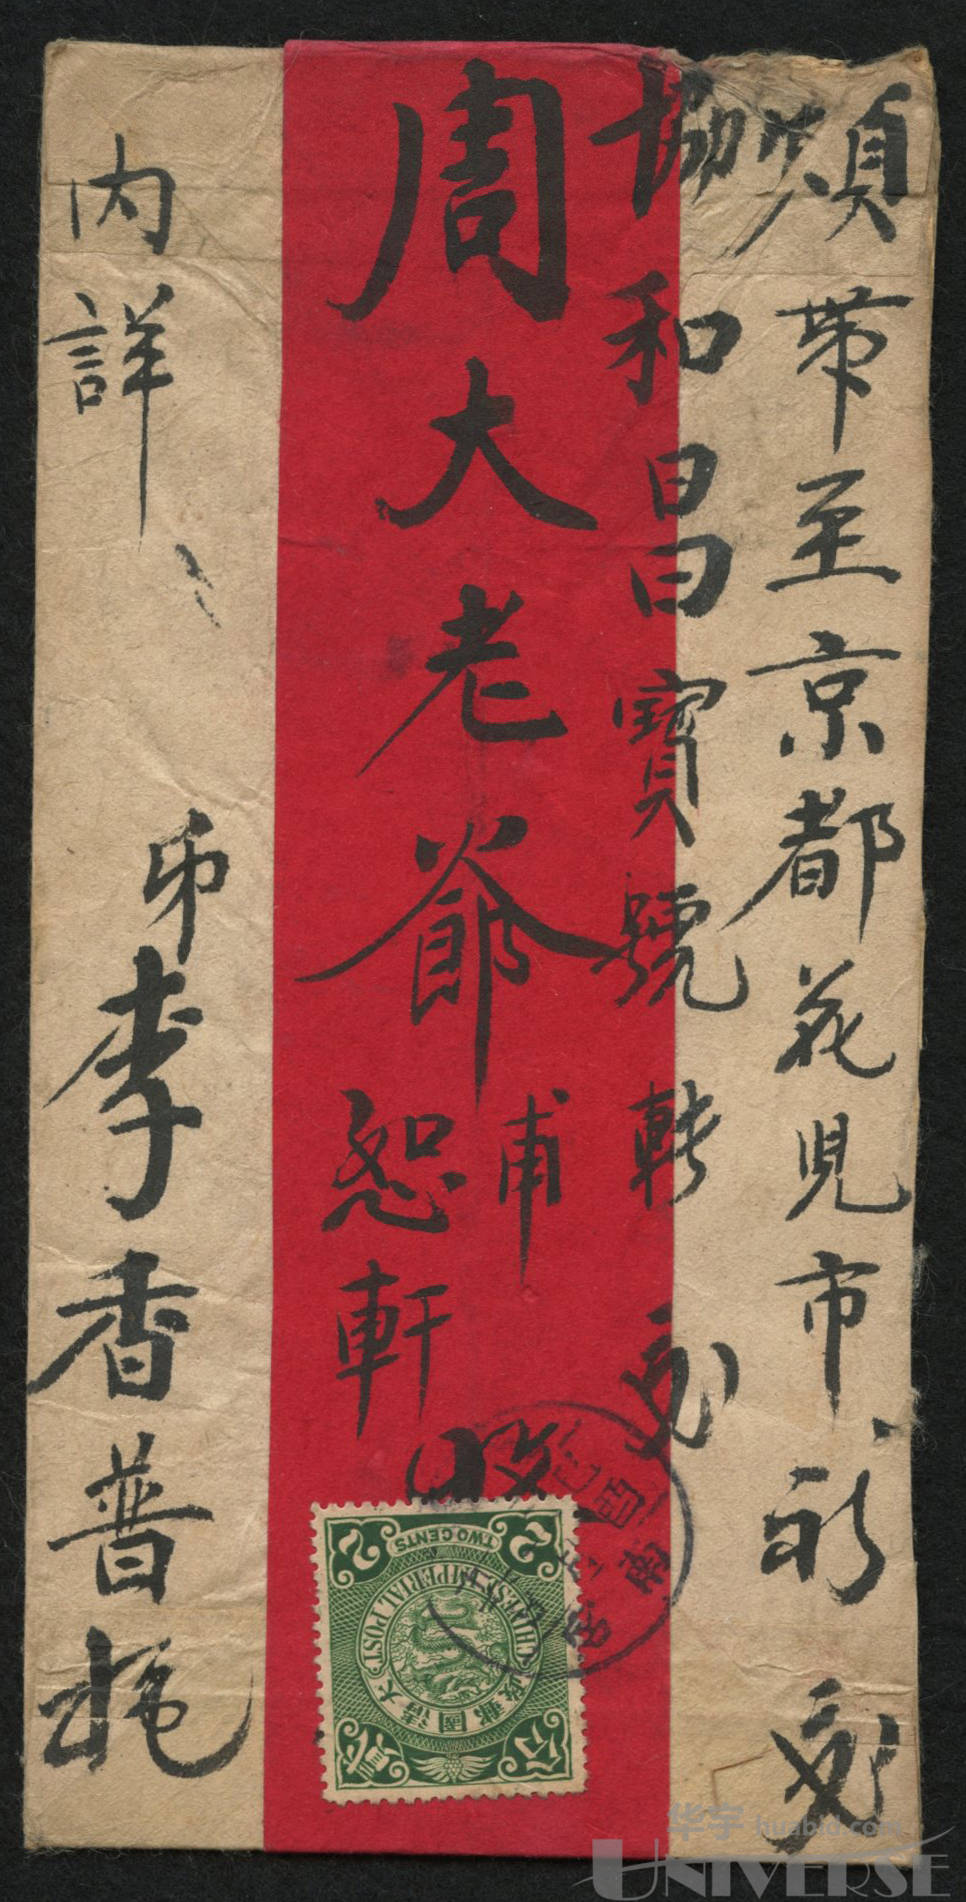 煩帶至京都花児市
協和昌寶號轉交
周大老爺
甫
恕軒
收
内詳
弟李香普托
2
TWO CENTS
2
CHINESE IMPERIAL POST
大清國郵政
貳
分
华宇 huabid.com
UNIVERSE